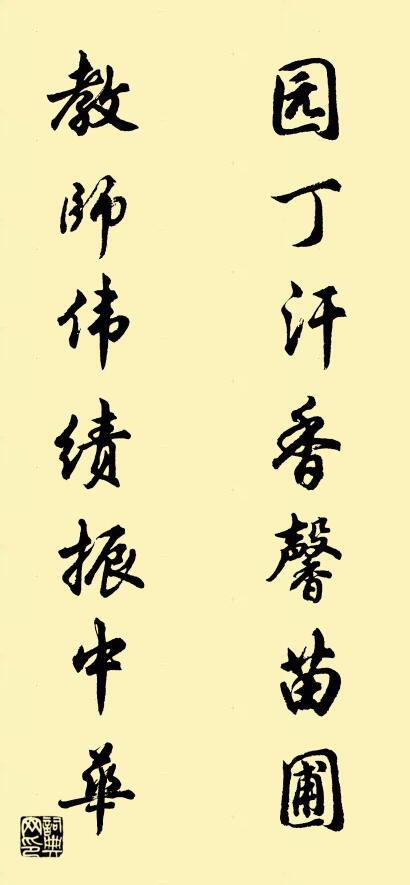 园丁汗香馨苗圃
教師伟绩振中華
詞典网印